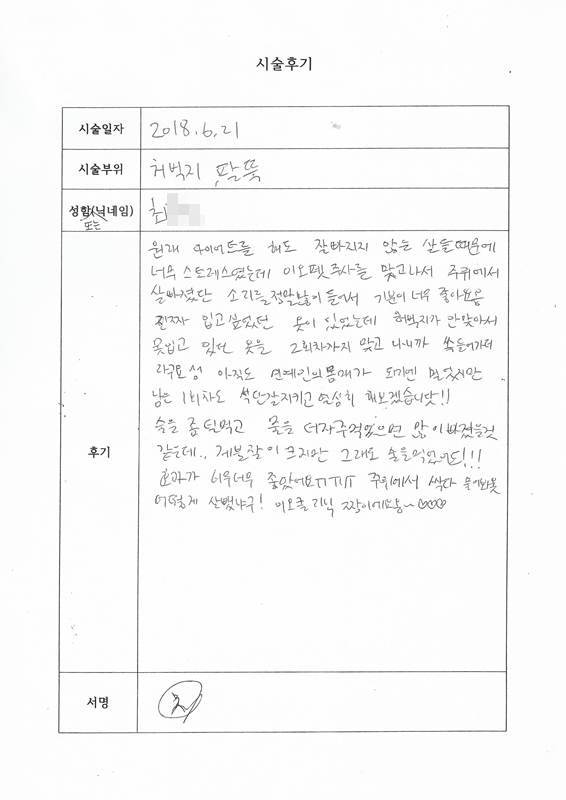 시술후기
시술일자 2018.6.21
시술부위 허벅지 팔뚝
성함(닉네임) 최
또는
원래 다이어트를 해도 잘빠지지 않는 살들때문에
너무 스트레스였는데 이오펫주사를 맞고나서 주위에서
살빠졌단 소리를정말많이 들어서 기분이 너무 좋아요용
진짜 입고싶었던 옷이 있었는데 허벅지가 안맞아서
못입고 있던 옷을 2회차까지 맞고 나니까 쑥들어가져
라구요 성 아직도 연예인의몸매가 되기엔 멀었지만
남은 1회차도 식단잘지키고 열심히 해보겠습니닷!!
술을 좀 덜먹고 물을 더자주먹었으면 많이빠졌을것
같은데.. 제불찰이 크지만 그래도 술을먹었어도!!!
효과가 너무너무 좋았어요ㅠㅠㅠ 주위에서 싹다 물어봐욧
어떻게 살뺐냐구! 이오클리닉 짱이에요용~♡♡♡
후기
서명 최